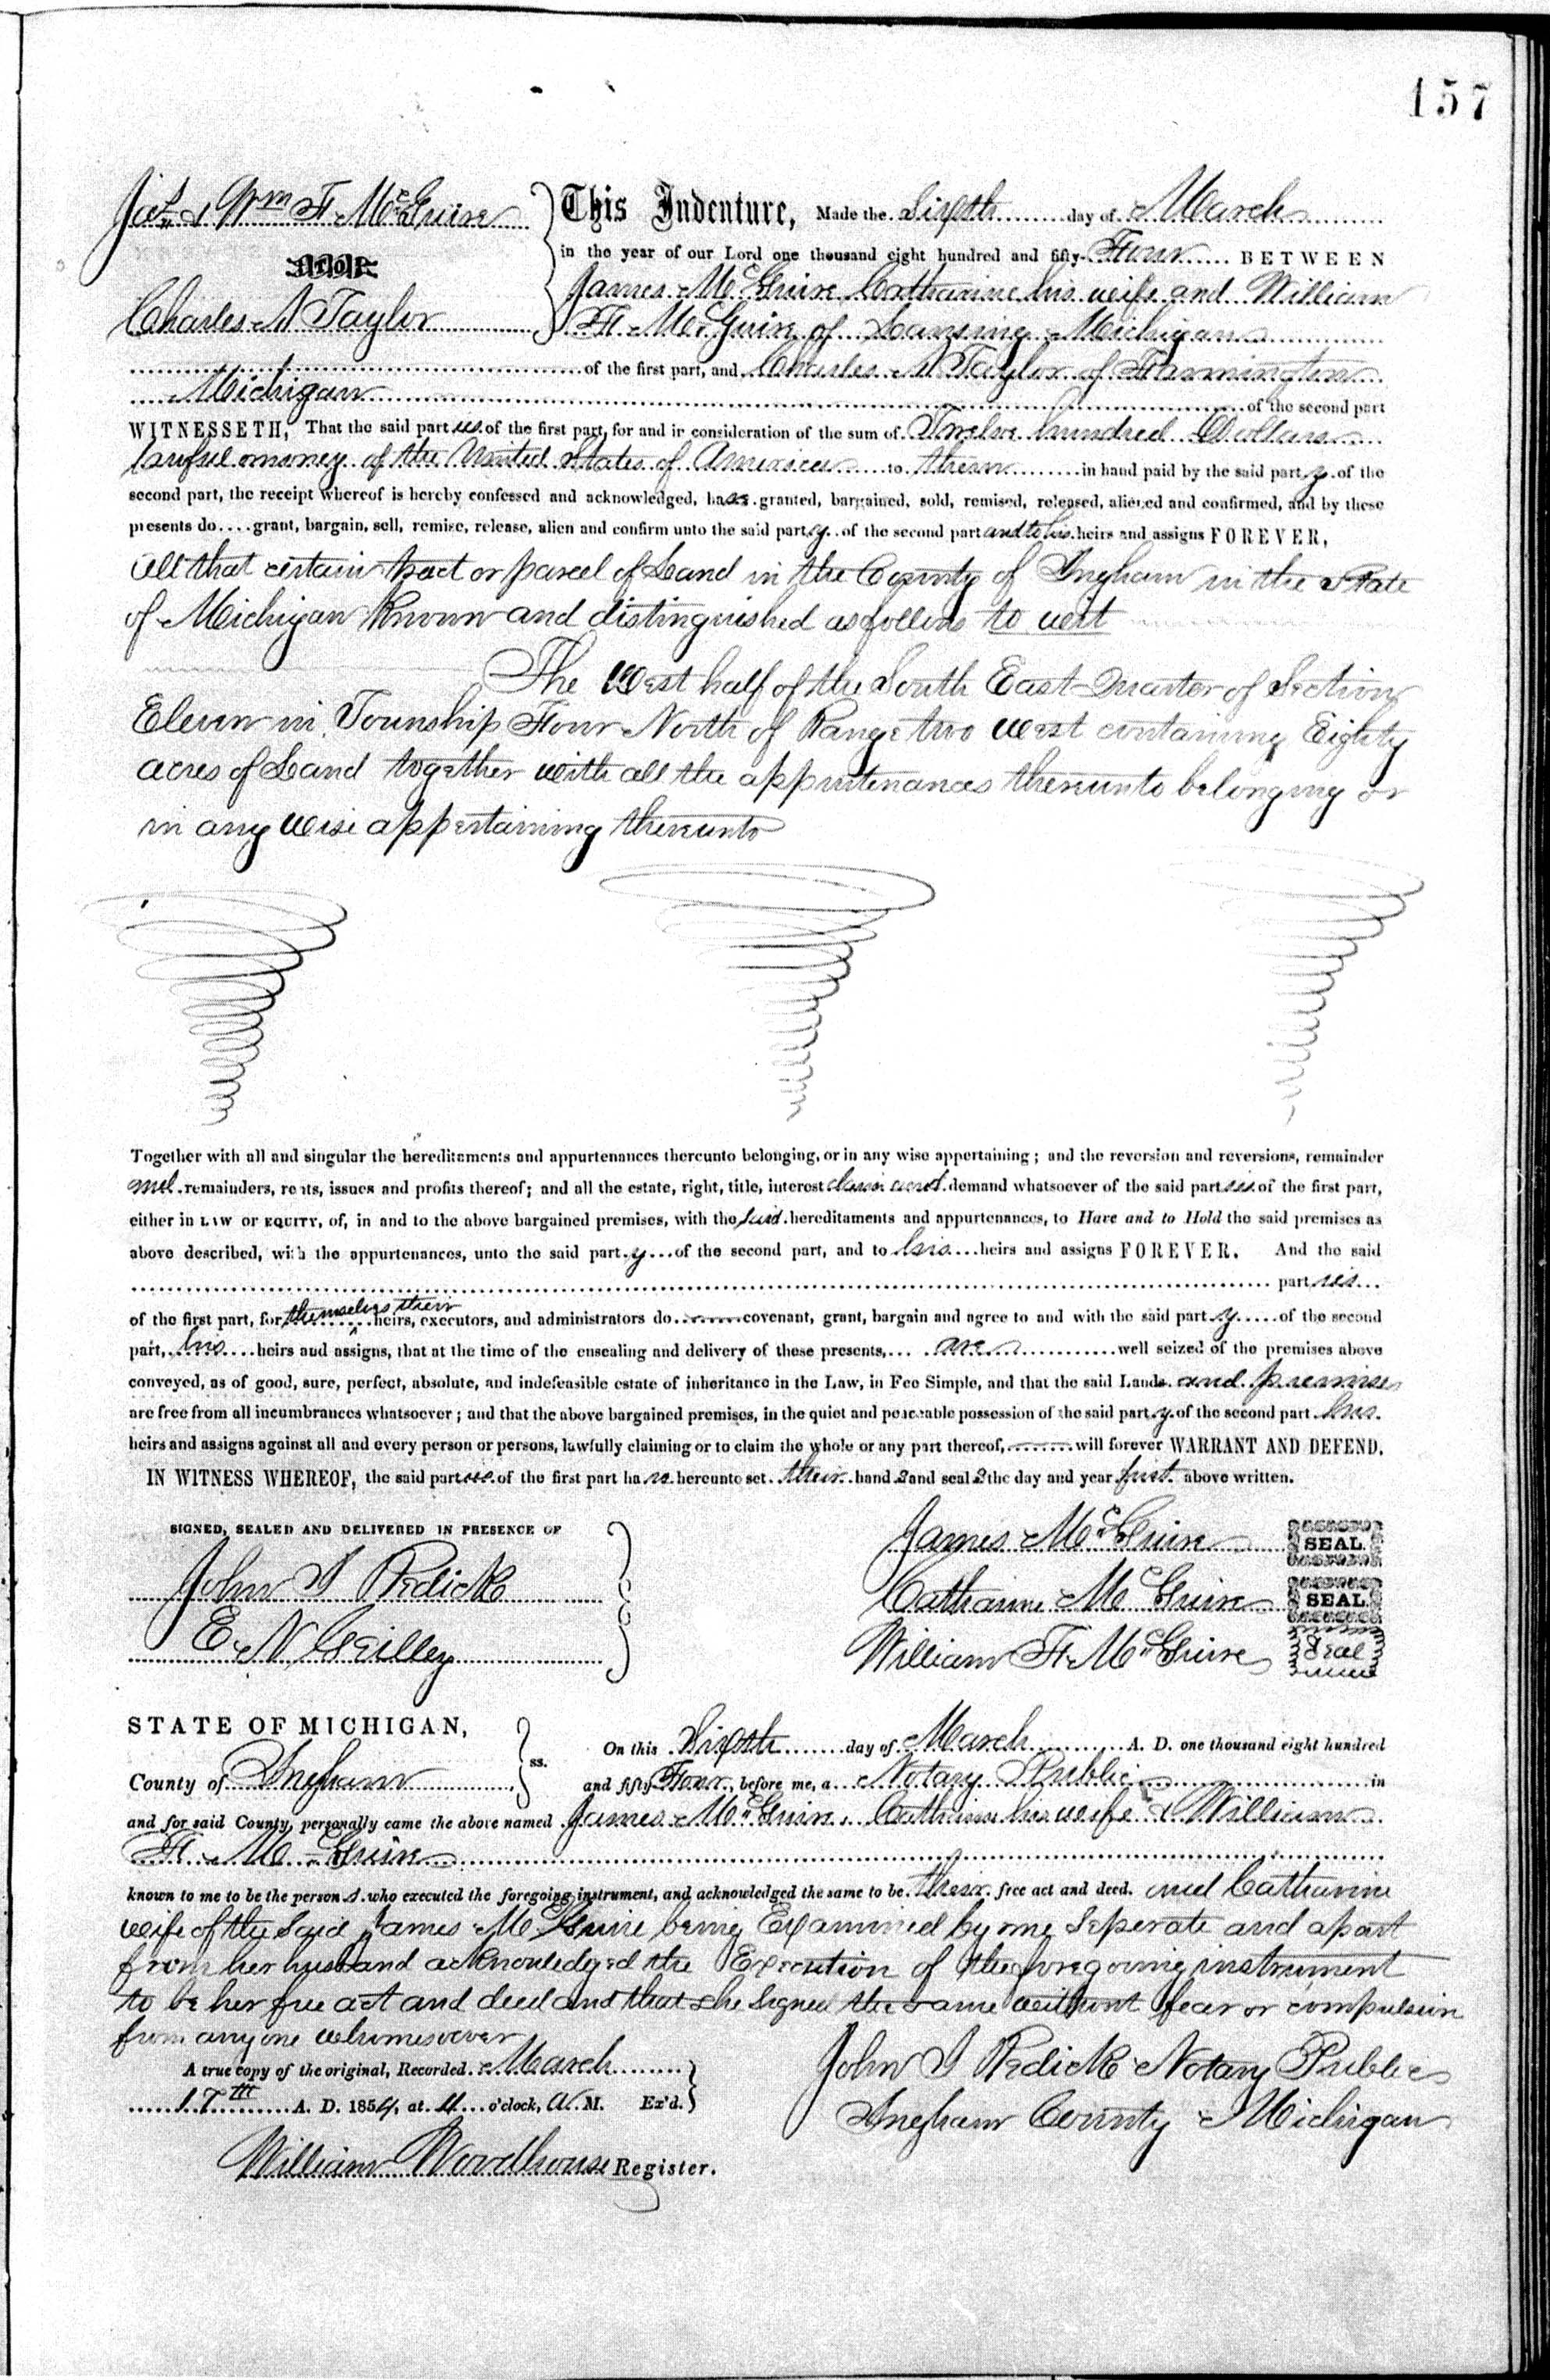 157
Jas & Wm H McGuire
TO
Charles N Taylor
This Indenture, Made the Sixth day of March
in the year of our Lord one thousand eight hundred and fifty-Four BETWEEN
James McGuire Catharine his wife and William
H McGuire of Lansing Michigan
of the first part, and Charles N Taylor of Farmington
Michigan of the second part
WITNESSETH, That the said parties of the first part, for and in consideration of the sum of Twelve hundred Dollars
lawful money of the United States of America to them in hand paid by the said party of the
second part, the receipt whereof is hereby confessed and acknowledged, have granted, bargained, sold, remised, released, aliened and confirmed, and by these
presents do grant, bargain, sell, remise, release, alien and confirm unto the said party of the second part and to his heirs and assigns FOREVER,
All that certain tract or parcel of Land in the County of Ingham in the State
of Michigan Known and distinguished as follows to wit
The West half of the South East Quarter of Section
Eleven in Township Four North of Range two West containing Eighty
acres of Land together with all the appurtenances thereunto belonging or
in any wise appertaining thereunto
Together with all and singular the hereditaments and appurtenances thereunto belonging, or in any wise appertaining; and the reversion and reversions, remainder
and remainders, rents, issues and profits thereof; and all the estate, right, title, interest claim and demand whatsoever of the said parties of the first part,
either in LAW OR EQUITY, of, in and to the above bargained premises, with the said hereditaments and appurtenances, to Have and to Hold the said premises as
above described, with the appurtenances, unto the said party of the second part, and to his heirs and assigns FOREVER. And the said
parties
of the first part, for themselves their heirs, executors, and administrators do covenant, grant, bargain and agree to and with the said party of the second
part, his heirs and assigns, that at the time of the ensealing and delivery of these presents, are well seized of the premises above
conveyed, as of good, sure, perfect, absolute, and indefeasible estate of inheritance in the Law, in Fee Simple, and that the said Lands and premises
are free from all incumbrances whatsoever; and that the above bargained premises, in the quiet and peaceable possession of the said party of the second part his
heirs and assigns against all and every person or persons, lawfully claiming or to claim the whole or any part thereof, will forever WARRANT AND DEFEND.
IN WITNESS WHEREOF, the said parties of the first part have hereunto set their hands and seals the day and year first above written.
SIGNED, SEALED AND DELIVERED IN PRESENCE OF
John I Redick
E. N.
James McGuire SEAL
Catharine McGuire SEAL
William H McGuire Seal
STATE OF MICHIGAN,
County of Ingham ss.
On this Sixth day of March A. D. one thousand eight hundred
and fifty Four, before me, a Notary Public in
and for said County, personally came the above named James McGuire, Catharine his wife & William
H McGuire
known to me to be the persons who executed the foregoing instrument, and acknowledged the same to be their free act and deed. and Catharine
wife of the said James McGuire being Examined by me Seperate and apart
from her husband acknowledged the Execution of the foregoing instrument
to be her free act and deed and that she Signed the same without fear or compulsion
from any one whomesoever
A true copy of the original, Recorded March
17th A. D. 1854, at 11 o'clock, A. M. Ex'd.
William Woodhouse Register.
John I Redick Notary Public
Ingham County Michigan